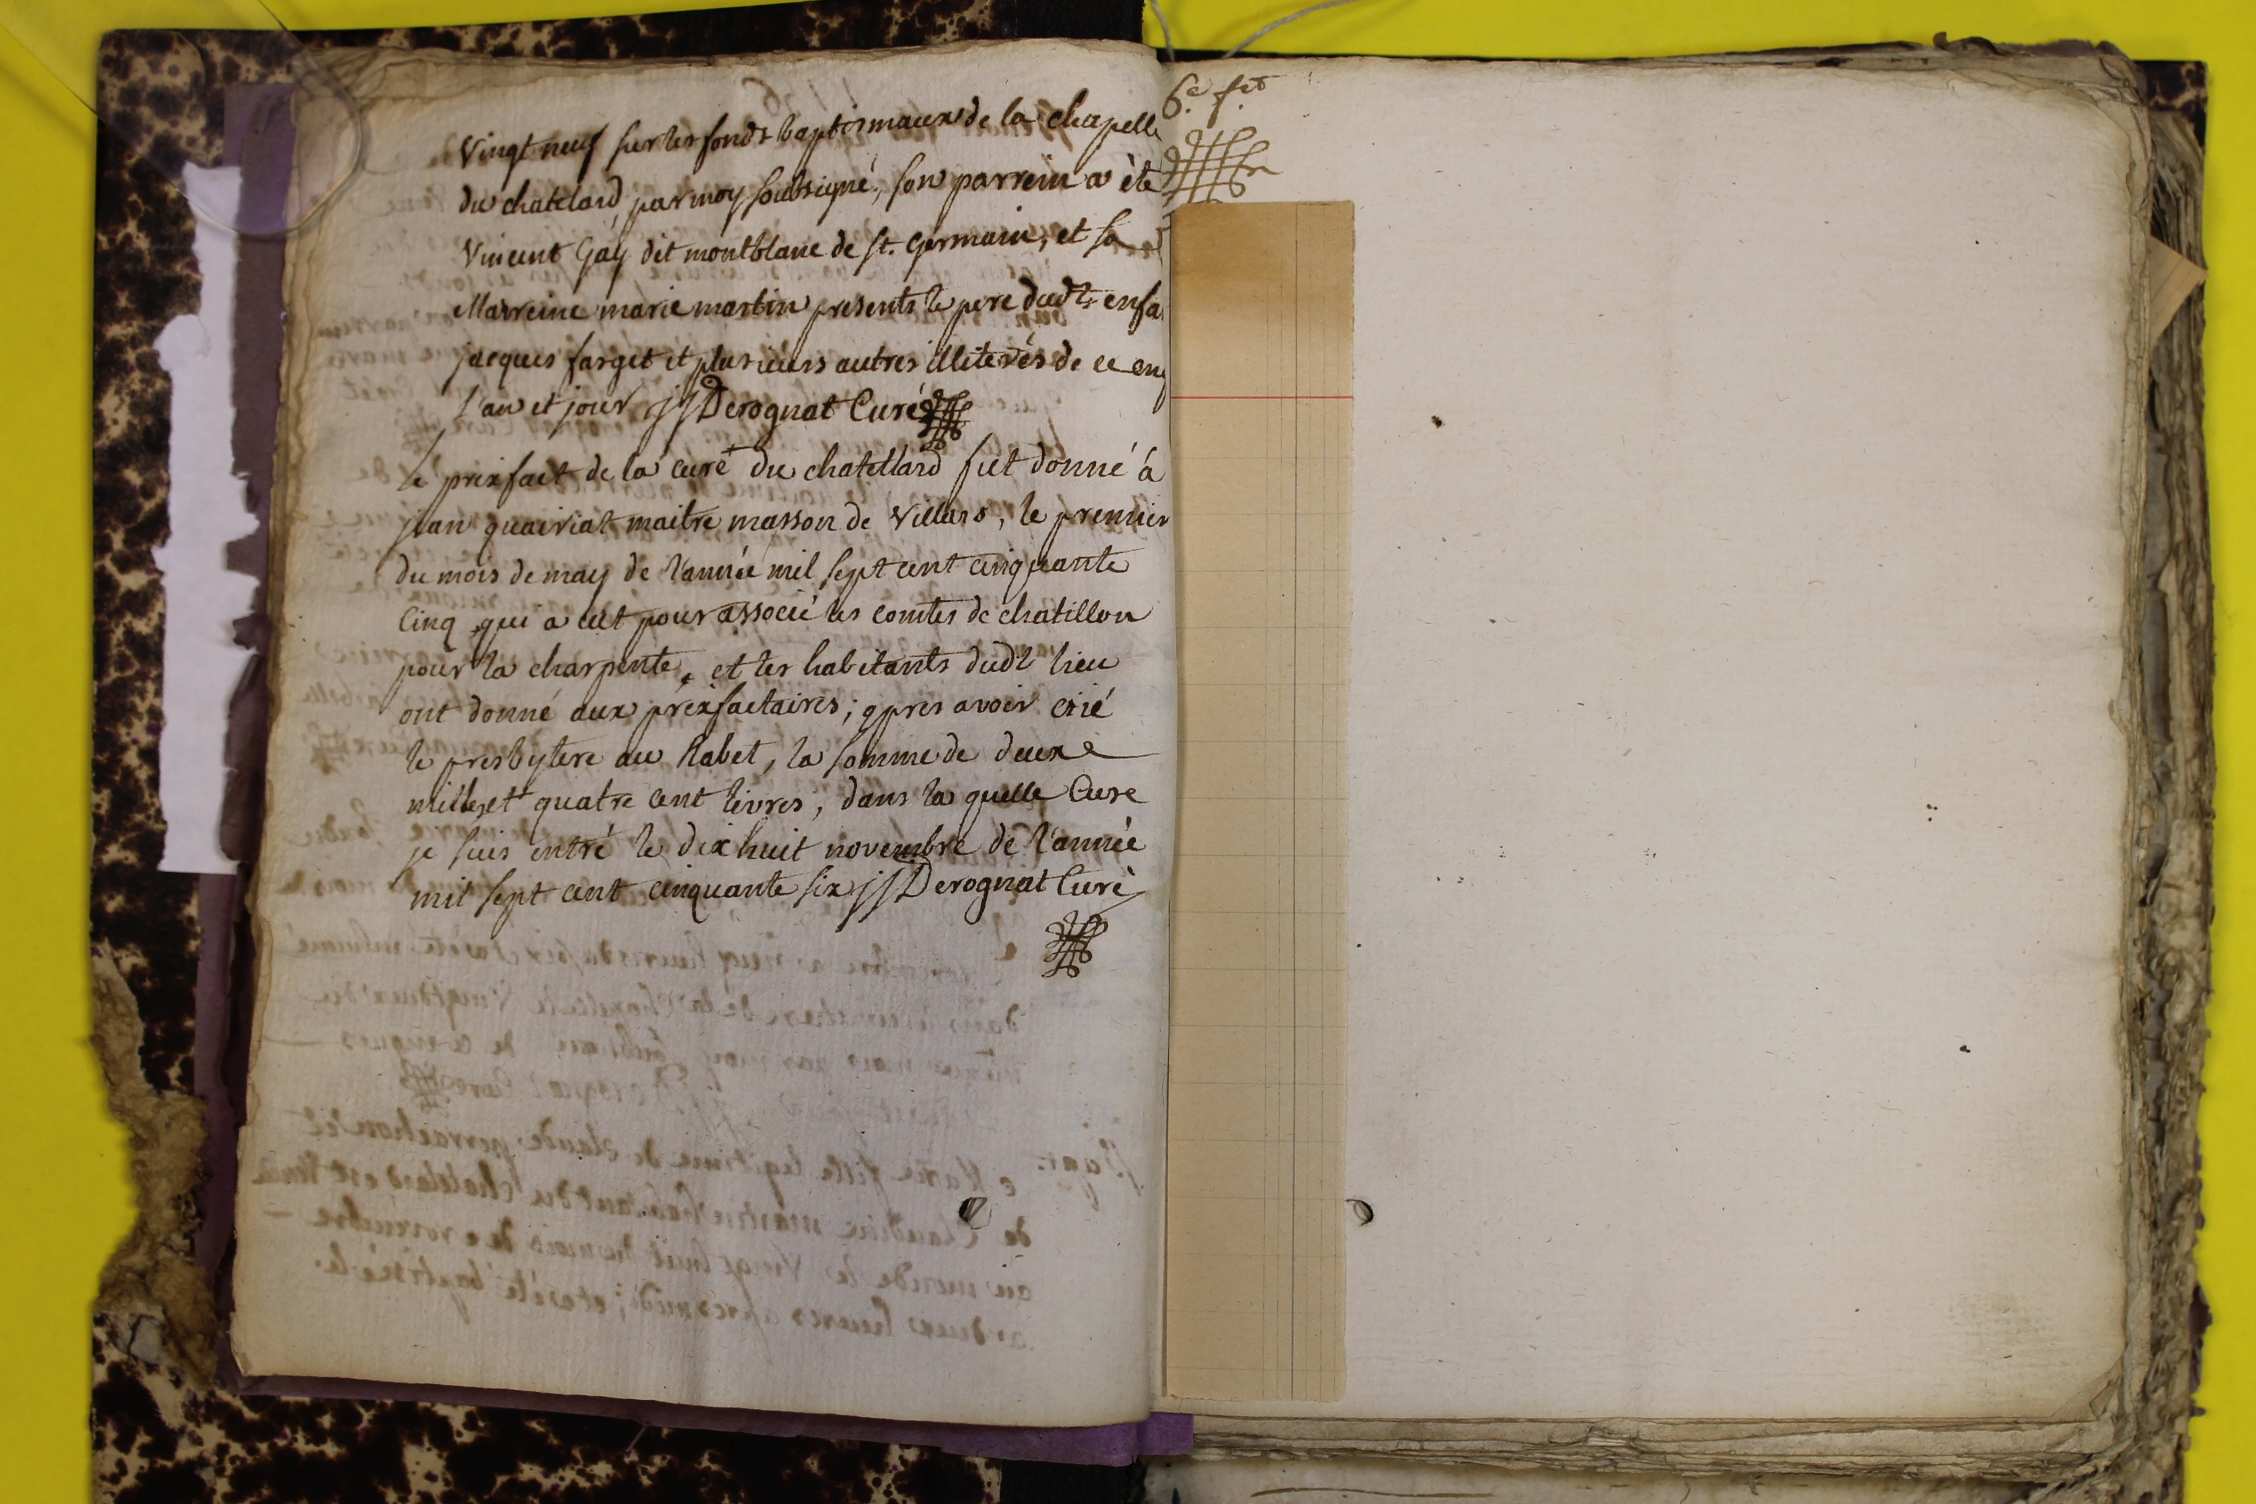 Vingt neuf sur les fonds baptismaux de la chapell
du chatelard, par moy soubsigné, son parrein a èté
Vincent Gay dit montblanc de st. germain, et sa
Marreine marie martin presents le pere dudt enfa
jacques farget et plusieurs autres illiterés de ce enq
l'an et jour jjDerognat Curé
le prixfait de la cure du chatellard fut donné à
jean quairiat maitre masson de Villars, le premier
du mois de may de l'année mil sept cent cinquante
Cinq, qui a eut pour associé les comtes de chatillon
pour la charpente, et les habitants dudt lieu
ont donné aux prixfactaires; apres avoir crié
le presbytere au Rabet, la somme de deux
mille et quatre cent livres, dans la quelle Cure
je suis entré le dix huit novembre de l'année
mil sept cent cinquante six jjDerognat Curè
6e. f.et